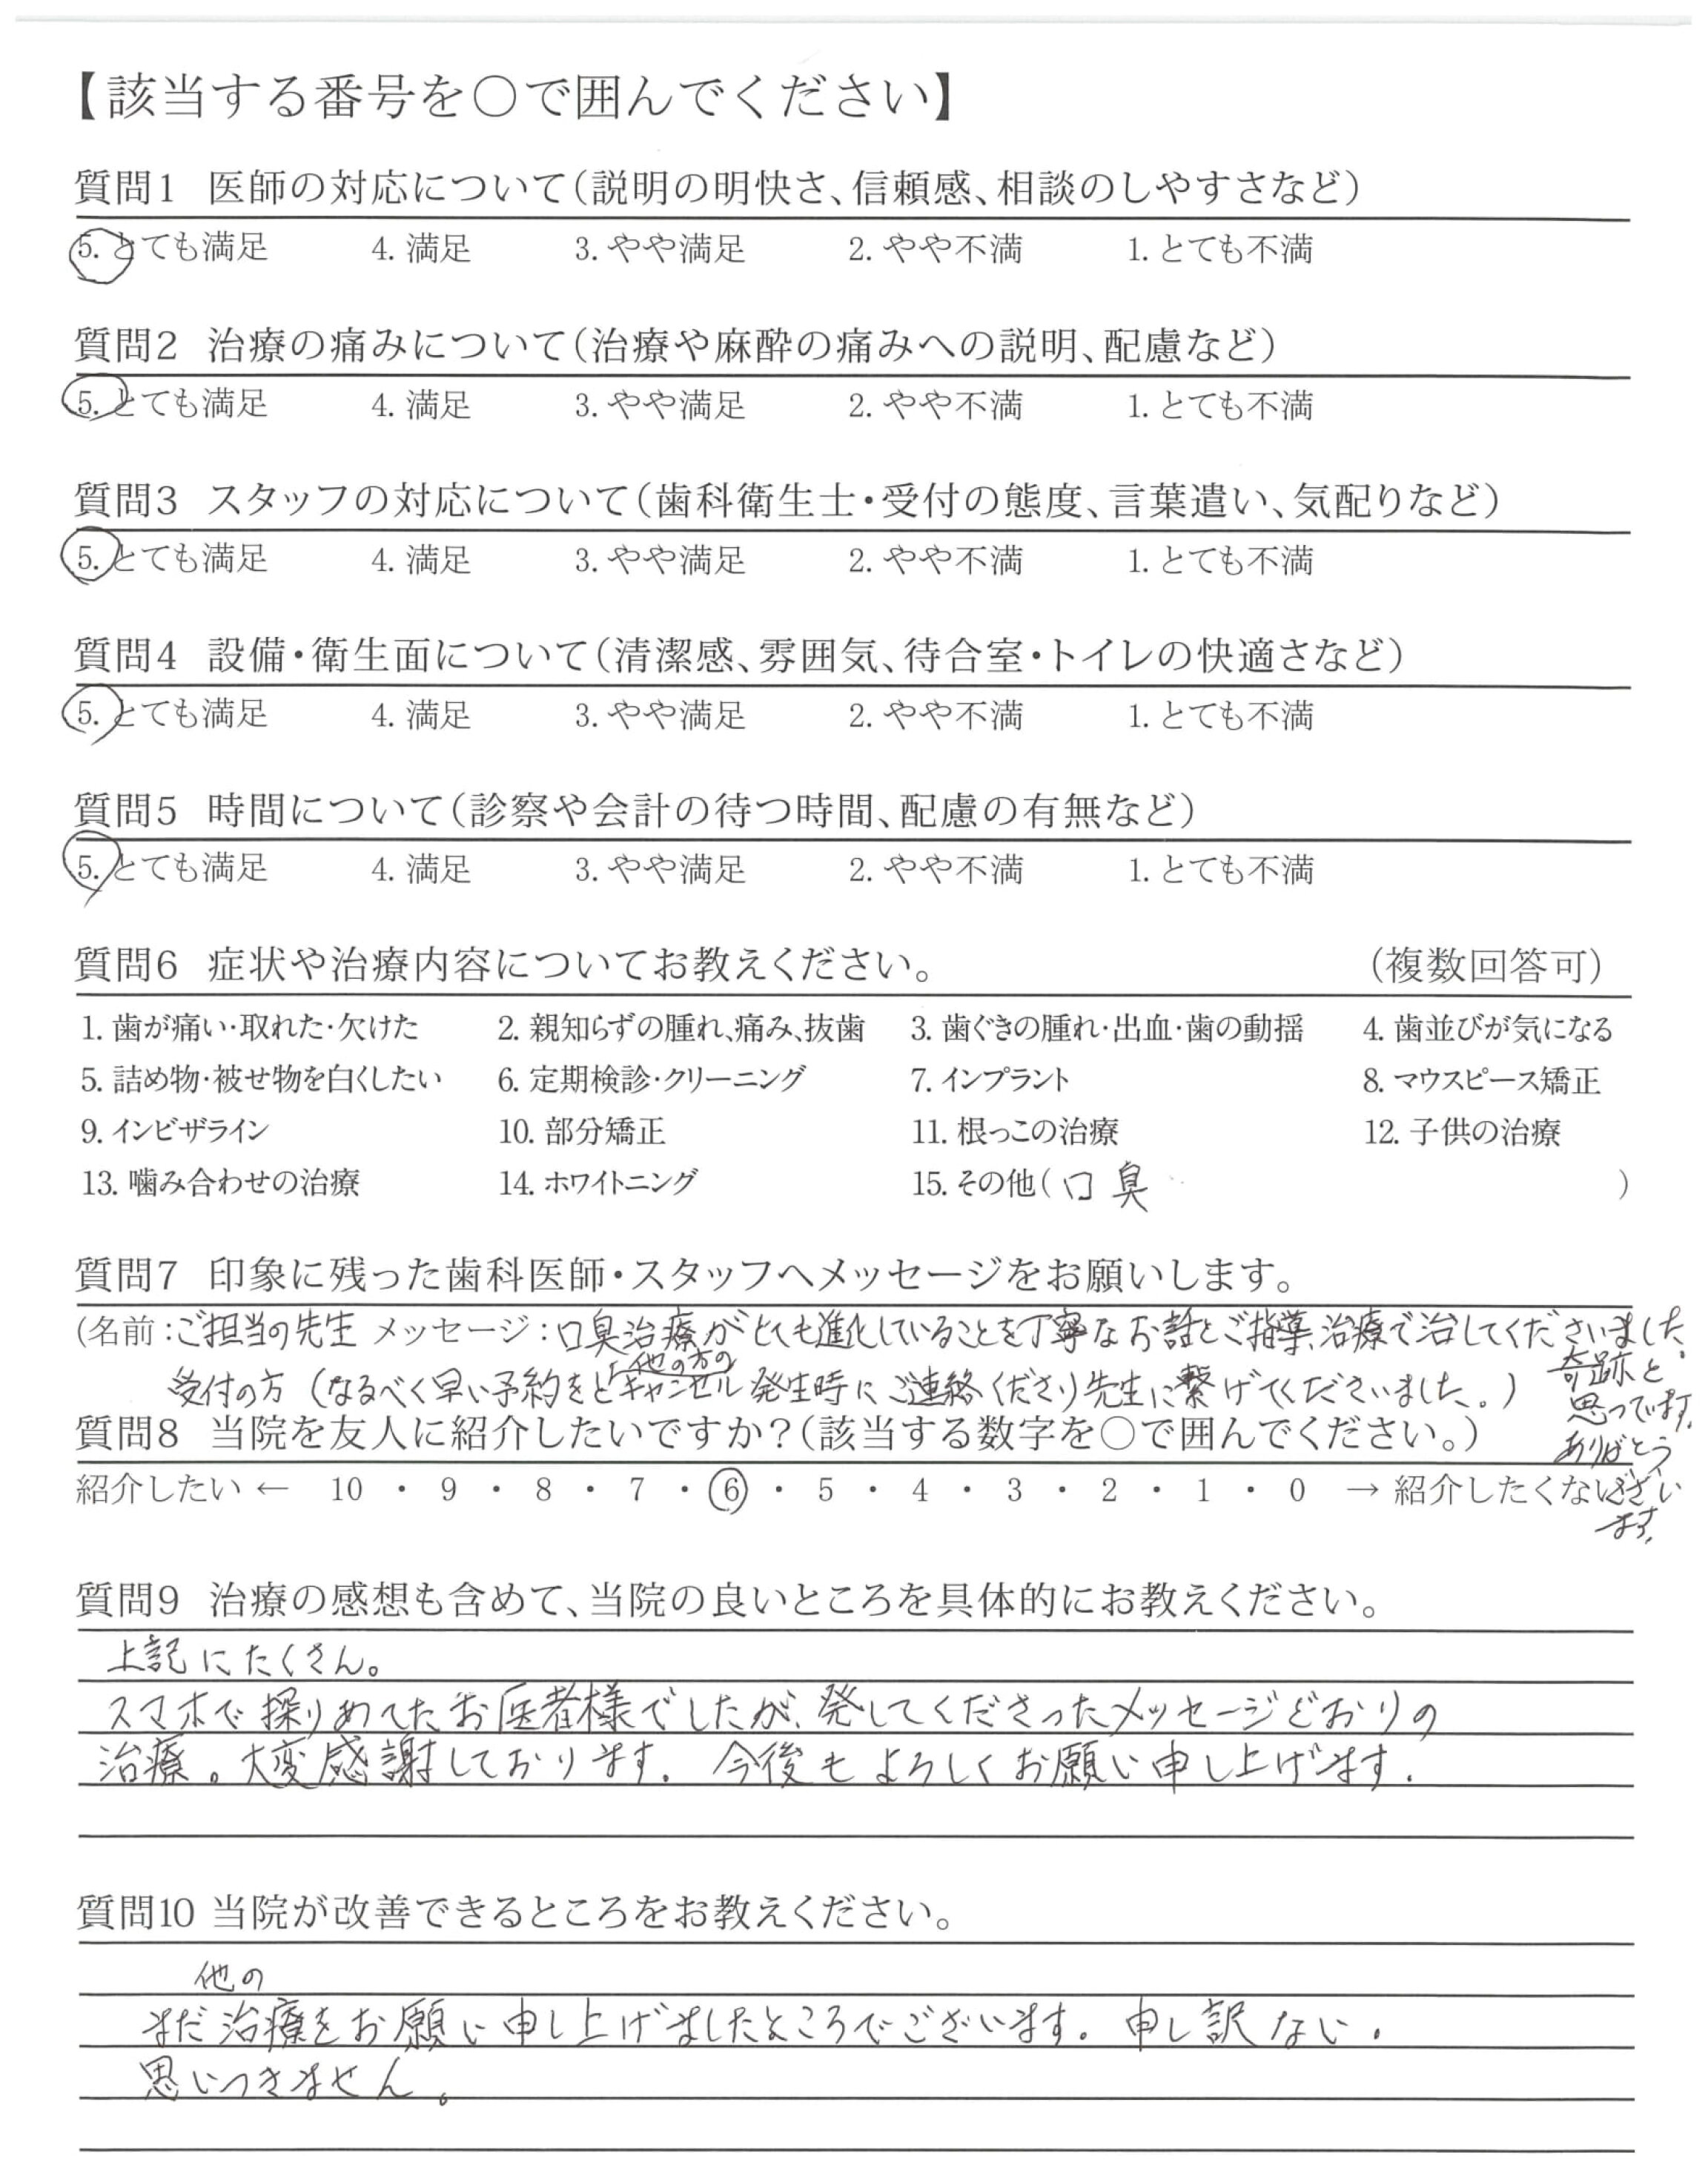 【該当する番号を〇で囲んでください】
質問1 医師の対応について(説明の明快さ、信頼感、相談のしやすさなど)
5. とても満足 4. 満足 3. やや満足 2. やや不満 1. とても不満
質問2 治療の痛みについて(治療や麻酔の痛みへの説明、配慮など)
5. とても満足 4. 満足 3. やや満足 2. やや不満 1. とても不満
質問3 スタッフの対応について(歯科衛生士・受付の態度、言葉遣い、気配りなど)
5. とても満足 4. 満足 3. やや満足 2. やや不満 1. とても不満
質問4 設備・衛生面について(清潔感、雰囲気、待合室・トイレの快適さなど)
5. とても満足 4. 満足 3. やや満足 2. やや不満 1. とても不満
質問5 時間について(診察や会計の待つ時間、配慮の有無など)
5. とても満足 4. 満足 3. やや満足 2. やや不満 1. とても不満
質問6 症状や治療内容についてお教えください。 (複数回答可)
1. 歯が痛い・取れた・欠けた 2. 親知らずの腫れ、痛み、抜歯 3. 歯ぐきの腫れ・出血・歯の動揺 4. 歯並びが気になる
5. 詰め物・被せ物を白くしたい 6. 定期検診・クリーニング 7. インプラント 8. マウスピース矯正
9. インビザライン 10. 部分矯正 11. 根っこの治療 12. 子供の治療
13. 噛み合わせの治療 14. ホワイトニング 15. その他(口臭 )
質問7 印象に残った歯科医師・スタッフへメッセージをお願いします。
(名前:ご担当の先生 メッセージ:口臭治療がとても進化していることを丁寧なお話とご指導、治療で治してくださいました。
奇跡と
思ってます。
ありがとう
ござい
ます。
他の方の
受付の方(なるべく早い予約をとキャンセル発生時にご連絡くださり先生に繋げてくださいました。)
質問8 当院を友人に紹介したいですか?(該当する数字を〇で囲んでください。)
紹介したい ← 10 ・ 9 ・ 8 ・ 7 ・ 6 ・ 5 ・ 4 ・ 3 ・ 2 ・ 1 ・ 0 → 紹介したくない
質問9 治療の感想も含めて、当院の良いところを具体的にお教えください。
上記にたくさん。
スマホで探りあてたお医者様でしたが、発してくださったメッセージどおりの
治療。大変感謝しております。今後もよろしくお願い申し上げます。
質問10 当院が改善できるところをお教えください。
他の
まだ治療をお願い申し上げましたところでございます。申し訳ない。
思いつきません。